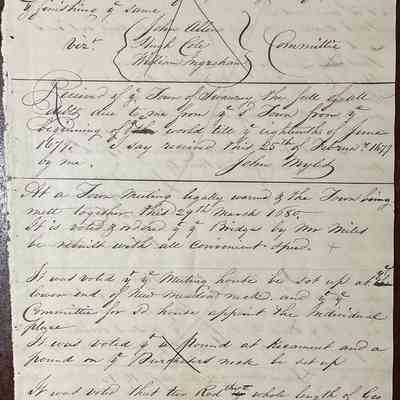 finishing yᵉ same
John Allen
Vizᵗ. Hugh Cole Committie
William Ingraham
Recived of yᵉ Town of Swansey the full of all
debts due to me from yᵉ sᵈ Town from yᵉ
beginning of yᵉ world till yᵉ eighteenth of June
1679. I say recived this 25ᵗʰ of Februaʳ 1679
by me. John Myles
At a Town Meeting legally warned & the Town being
mett together this 29ᵗʰ March 1680.
It is voted & ordered yᵗ yᵉ Bridge by Mr Miles
be rebuilt with all convenient speed.
It was voted yᵗ yᵉ Meeting house be set up at yᵉ
lower end of New meadow neck. and yᵗ yᵉ
Committie for sᵈ house appoint the Individual
place
It was voted yᵗ a pound at Keeamuet and a
pound on yᵉ Purchasers neck be set up
It was voted that two Rod whole length of